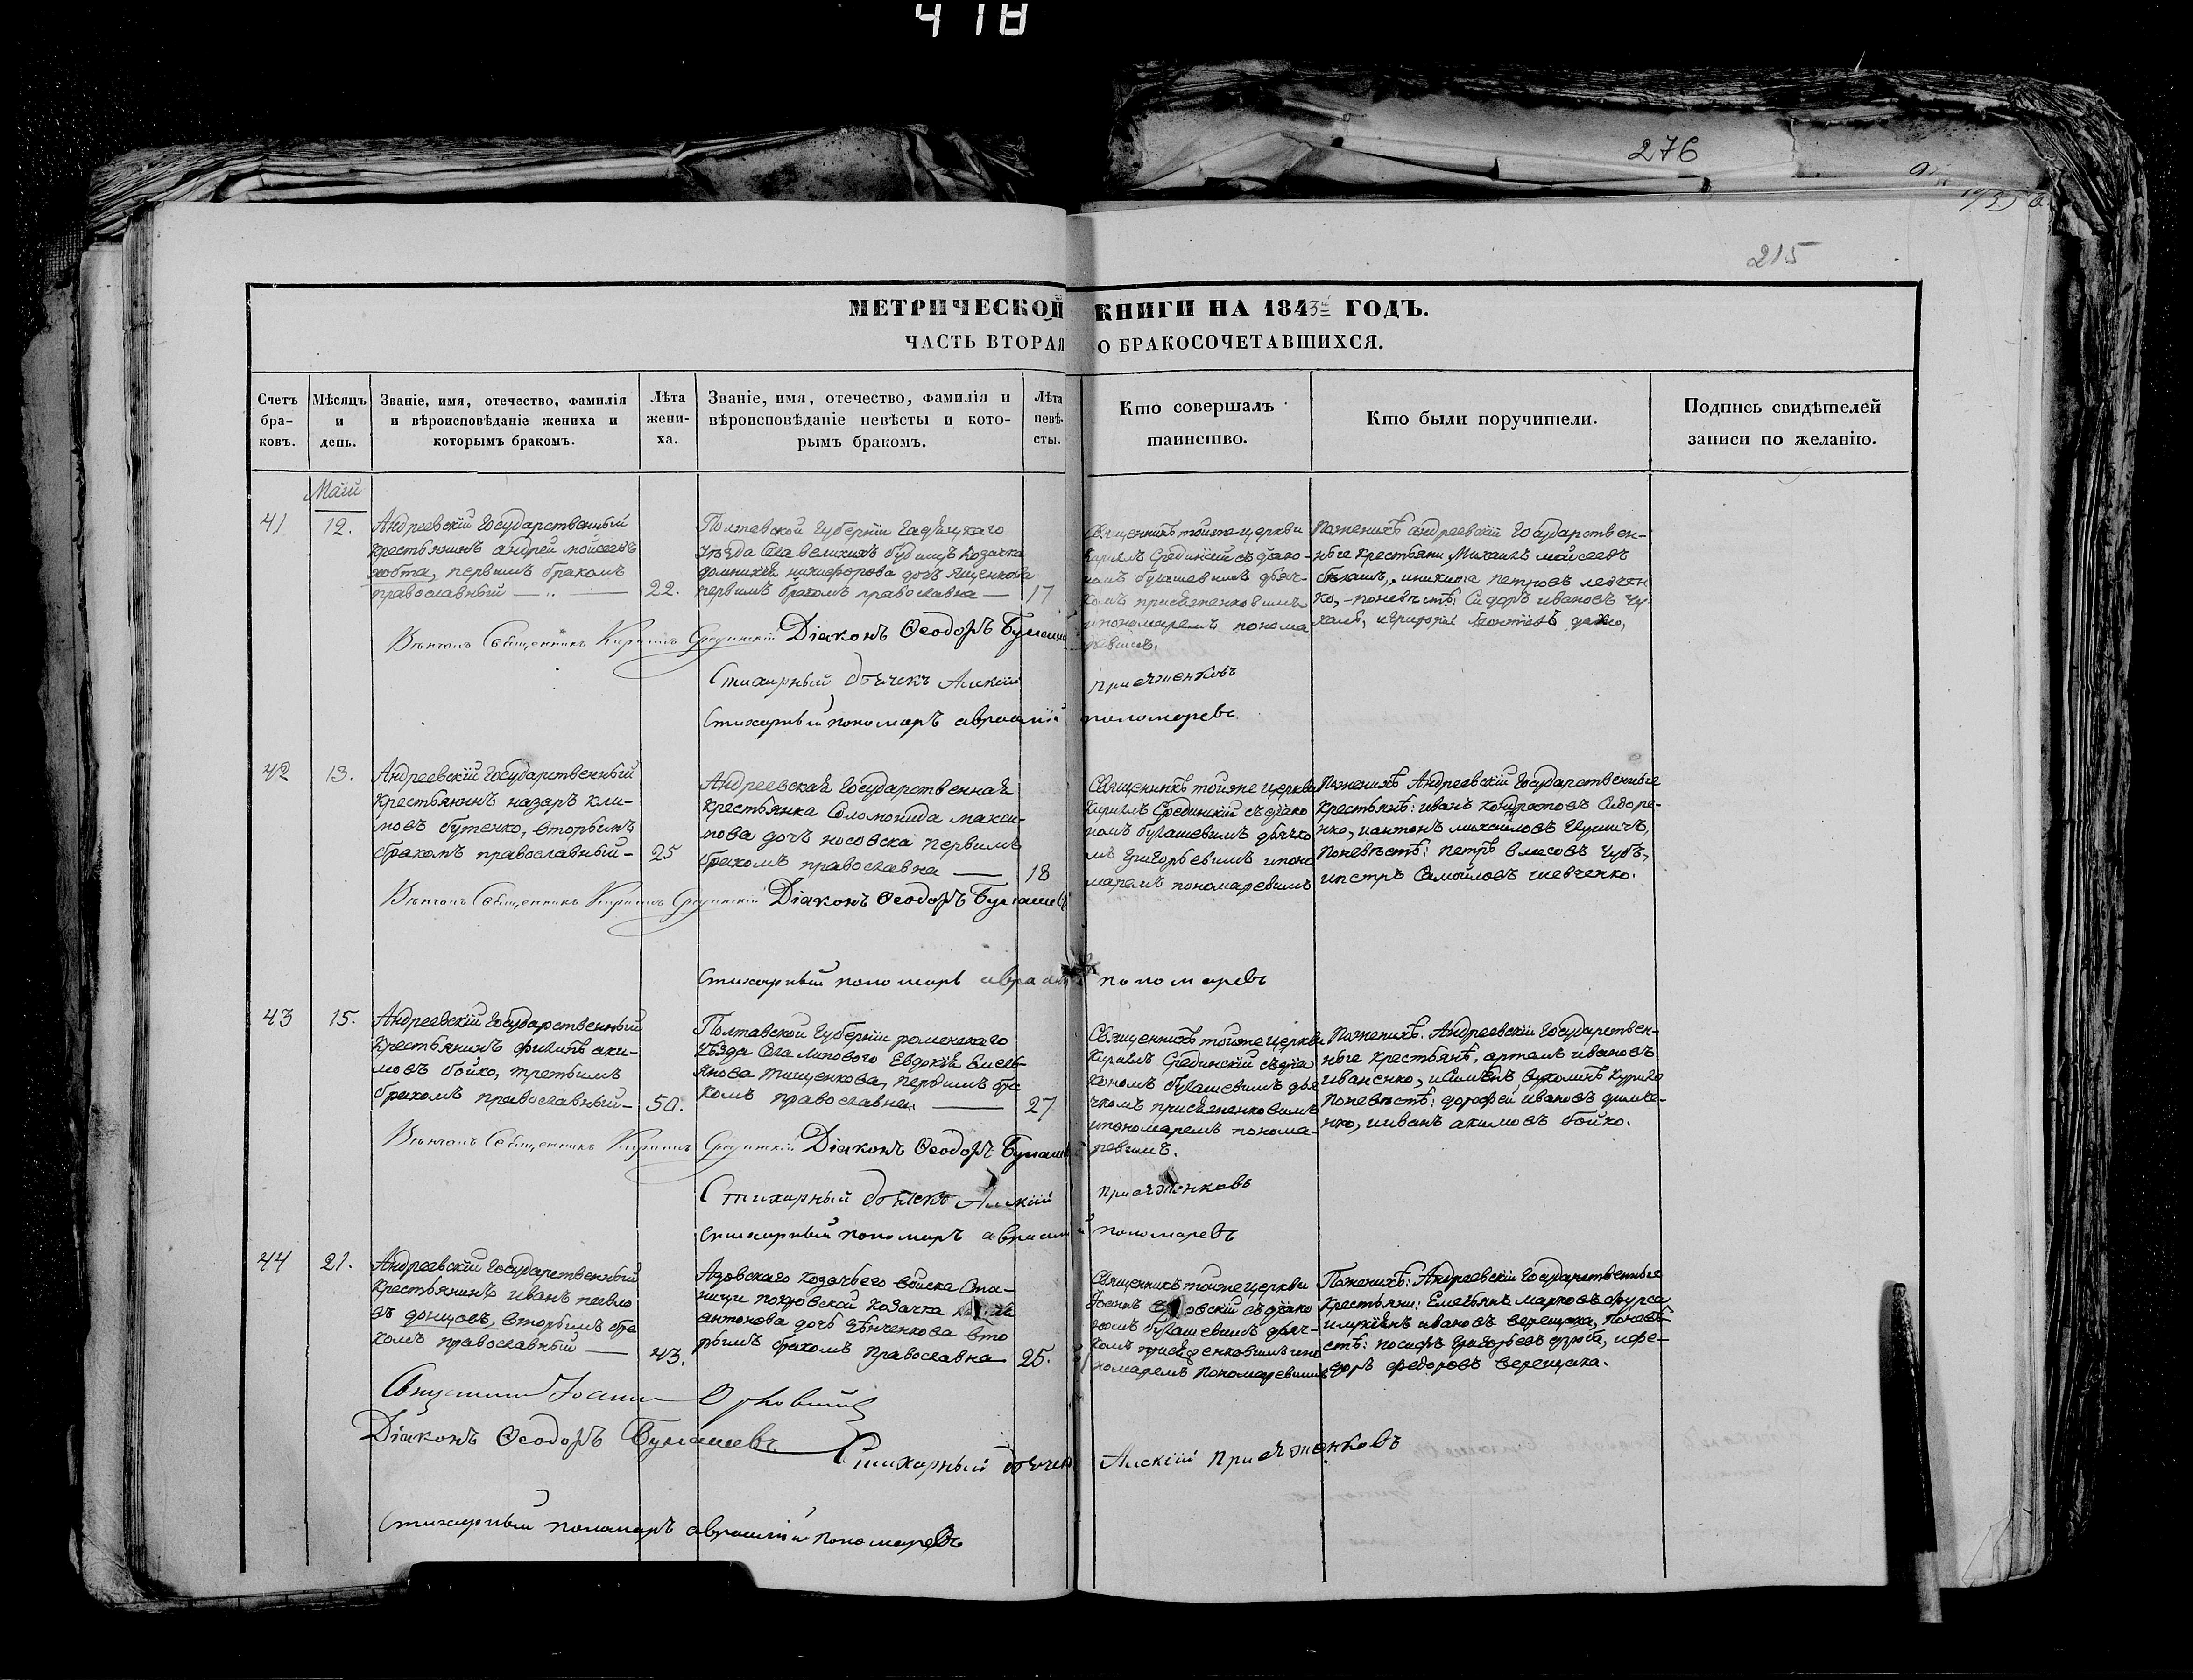 418
276
215
МЕТРИЧЕСКОЙ КНИГИ НА 1843 4 ГОДЪ.
ЧАСТЬ ВТОРАЯ О БРАКОСОЧЕТАВШИХСЯ.
Счетъ бра-ковъ.
Мѣсяцъ и день.
Званіе, имя, отечество, фамилія и вѣроисповѣданіе жениха и которымъ бракомъ.
Лѣта жени-ха.
Званіе, имя, отечество, фамилія и вѣроисповѣданіе невѣсты и кото-рымъ бракомъ.
Лѣта невѣ-сты.
Кто совершалъ таинство.
Кто были поручители.
Подпись свидѣтелей записи по желанію.
Маій
41
12.
Андреевскій Государственный
крестьянинъ андрей мойсеевъ
первымъ бракомъ
православный
22.
Полтавской Губерніи Гадяцкаго
уѣзда села великихъ будищъ козачка
никифорова дочь Яценкова
первымъ бракомъ православна
17
Священникъ тойже церкви
Кириллъ Срединскій съ діако-
номъ булашевимъ дьяч-
комъ присяженковимъ
и пономаремъ понома
ревимъ.
По женихѣ андреевскій Государствен-
ные крестьяни Михаилъ мойсеевъ
никита петровъ
ко, по невѣстѣ: Сидоръ ивановъ
Вѣнчалъ Священникъ Кириллъ Срединскій Діаконъ Ѳеодоръ Булашевъ
Стихарный дьячекъ Алексій Присяженковъ
Стихарный пономаръ аврамій пономаревъ
42
13.
Андреевскій Государственный
крестьянинъ назаръ кли-
мовъ бутенко, вторымъ
бракомъ православный
25
Андреевская Государственная
крестьянка Соломонида макси-
мова дочь носовска первымъ
бракомъ православна
18
Священникъ тойже церкви
Кириллъ Срединскій съ діако
номъ булашевимъ дьячко
мъ Григорьевимъ и поно
маремъ пономаревимъ
По женихѣ Андреевскій Государственные
крестьянѣ: иванъ кондратовъ Сидоре-
нко, и антонъ михайловъ
По невѣстѣ: петръ власовъ Чубъ,
и петръ Самойловъ шевченко.
Вѣнчалъ Священникъ Кириллъ Срединскій Діаконъ Ѳеодоръ Булашевъ
Стихарный пономаръ аврамій пономаревъ
43
15.
Андреевскій Государственный
крестьянинъ филипъ аки-
мовъ бойко, третьимъ
бракомъ православный
50.
Полтавской Губерніи роменскаго
уѣзда села липового Евдокія Емель-
янова тищенкова, первымъ бра
комъ православна
27
Священникъ тойже церкви
Кириллъ Срединскій съ діа
кономъ булашевимъ дья
чкомъ присяженковимъ
и пономаремъ понома-
ревимъ.
По женихѣ. Андреевскій Государствен-
ные крестьянѣ, артемъ ивановъ
иваненко,
По невѣстѣ: дорофей ивановъ
нко, и иванъ акимовъ бойко.
Вѣнчалъ Священникъ Кириллъ Срединскій Діаконъ Ѳеодоръ Булашевъ
Стихарный дьячекъ Алексій Присяженковъ
Стихарный пономаръ аврамій пономаревъ
44
21.
Андреевскій Государственный
крестьянинъ иванъ павло
въ донцовъ, вторымъ бра
комъ православный
43.
Азовскаго козачьего войска Ста-
ници покровской козачка
антонова дочь вто
рымъ бракомъ православна
25.
Священникъ тойже церкви
Іоаннъ съ діако
номъ булашевимъ дьяч-
комъ присяженковимъ и по
номаремъ пономаревимъ
По женихѣ: Андреевскій Государственные
крестьяни: Емельянъ марковъ фурса
ивановъ верещака, по невѣ-
стѣ: иосифъ григорьевъ дзюба, и фе-
доръ федоровъ верещака.
Іоаннъ
Діаконъ Ѳеодоръ Булашевъ
Стихарный дьячекъ Алексій Присяженковъ
Стихарный пономаръ аврамій пономаревъ